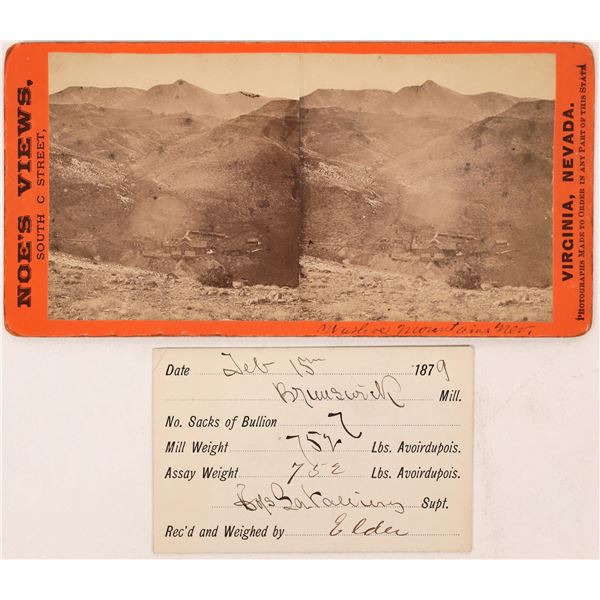 NOE'S VIEWS,
SOUTH C STREET,
VIRGINIA, NEVADA.
PHOTOGRAPHS MADE TO ORDER IN ANY PART OF THIS STATE
Washoe Mountains Nev.
Date Feb 15th 1879
Brunswick Mill.
No. Sacks of Bullion 7
Mill Weight 752 Lbs. Avoirdupois.
Assay Weight 752 Lbs. Avoirdupois.
Supt.
Rec'd and Weighed by Elder